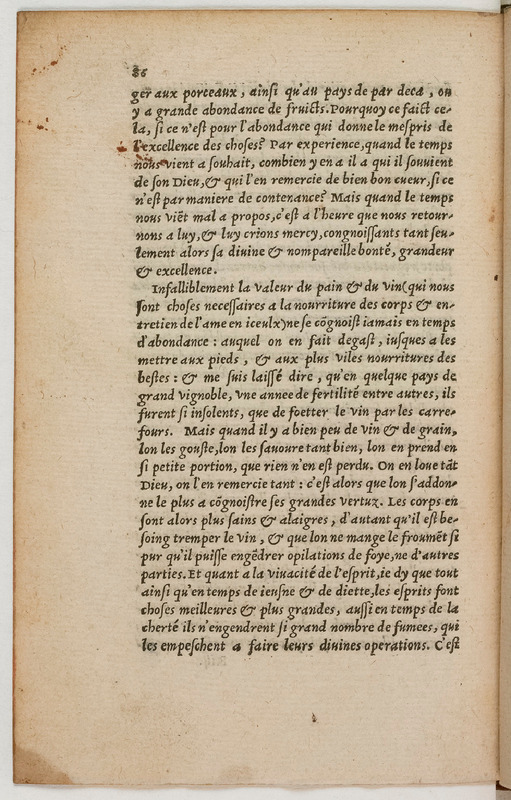 86
ger aux porceaux, ainsi qu'au pays de par deca, ou
y a grande abondance de fruicts. Pourquoy ce faict ce-
la, si ce n'est pour l'abondance qui donne le mespris de
l'excellence des choses? Par experience, quand le temps
nous vient a souhait, combien y en a il a qui il souvient
de son Dieu, & qui l'en remercie de bien bon cueur, si ce
n'est par maniere de contenance? Mais quand le temps
nous viēt mal a propos, c'est a l'heure que nous retour-
nons a luy, & luy crions mercy, congnoissants tant seu-
lement alors sa divine & nompareille bonté, grandeur
& excellence.
Infalliblement la valeur du pain & du vin (qui nous
sont choses necessaires a la nourriture des corps & en-
tretien de l'ame en iceulx) ne se cōgnoist iamais en temps
d'abondance: auquel on en fait degast, iusques a les
mettre aux pieds, & aux plus viles nourritures des
bestes: & me suis laissé dire, qu'en quelque pays de
grand vignoble, vne annee de fertilité entre autres, ils
furent si insolents, que de foetter le vin par les carre-
fours. Mais quand il y a bien peu de vin & de grain,
lon les gouste, lon les savoure tant bien, lon en prend en
si petite portion, que rien n'en est perdu. On en loue tāt
Dieu, on l'en remercie tant: c'est alors que lon s'addon-
ne le plus a cōgnoistre ses grandes vertuz. Les corps en
sont alors plus sains & alaigres, d'autant qu'il est be-
soing tremper le vin, & que lon ne mange le froumēt si
pur qu'il puisse engēdrer opilations de foye, ne d'autres
parties. Et quant a la vivacité de l'esprit, ie dy que tout
ainsi qu'en temps de ieusne & de diette, les esprits font
choses meilleures & plus grandes, aussi en temps de la
cherté ils n'engendrent si grand nombre de fumees, qui
les empeschent a faire leurs divines operations. C'est